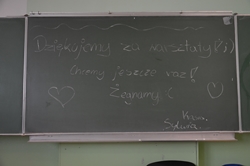 Dziękujemy za warsztaty (?;)
Chcemy jeszcze raz!
Żegnamy :(